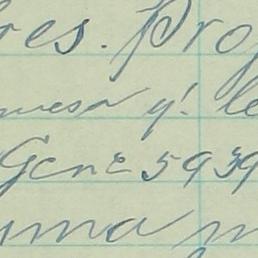 res. Pro
mesa y! le
Gen= 5939
uma m